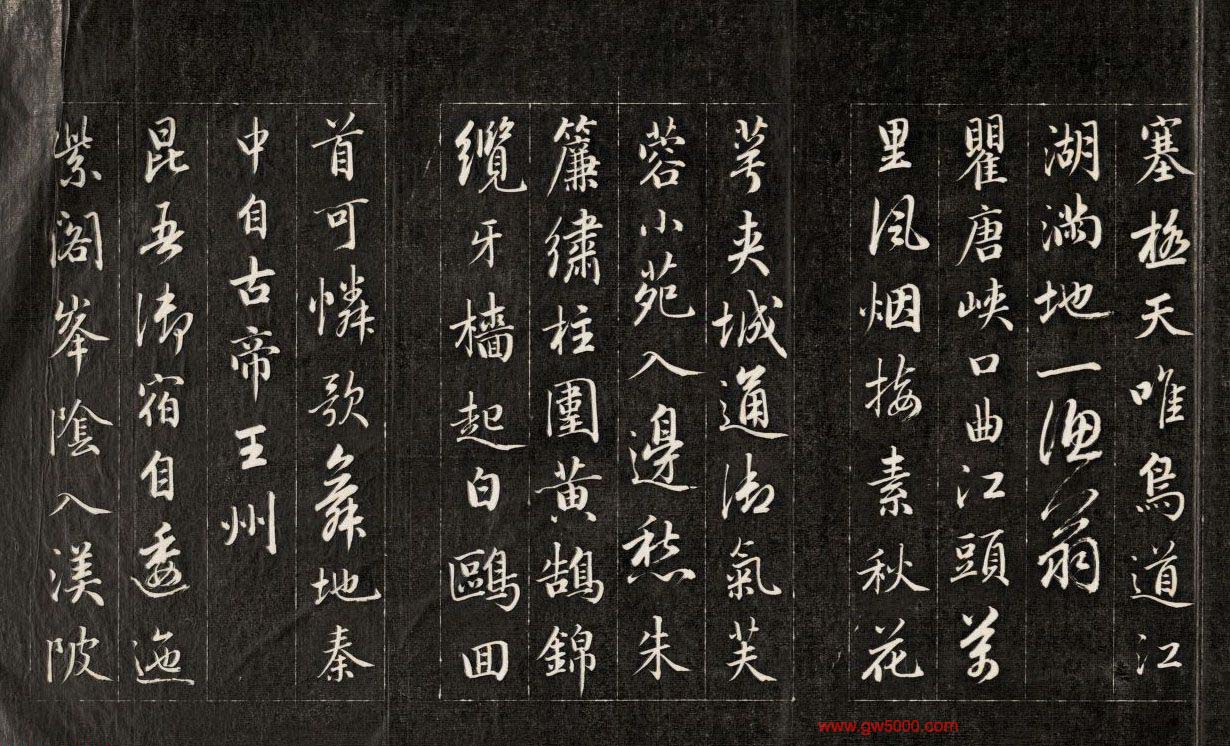 塞極天唯鳥道江
湖滿地一漁翁
瞿唐峽口曲江頭萬
里風烟接素秋花
萼夾城通御氣芙
蓉小苑入邊愁朱
簾繡柱圍黃鵠錦
纜牙檣起白鷗回
首可憐歌舞地秦
中自古帝王州
昆吾御宿自逶迤
紫閣峯陰入渼陂
www.gw5000.com